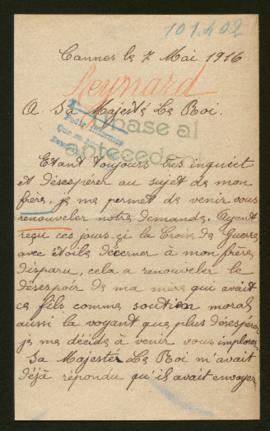 101402
Cannes le 7 Mai 1916
Reynard
A Sa Majesté Le Roi.
Pase al
antecede
Etant toujours très inquiet
et désespérer au sujet de mon
frère, je me permet de venir vous
renouveler notre demande. Ayant
reçu ces jours-ci la Croix de Guerre
avec étoile décerner à mon frère
disparu, cela a renouveler le
désespoir de ma mère qui avait
ce fils comme soutien moral
aussi la voyant que plus désespérer
je me décide à venir vous implorer
Sa Majester Le Roi m'avait
déjà répondu qu'il avait envoyer